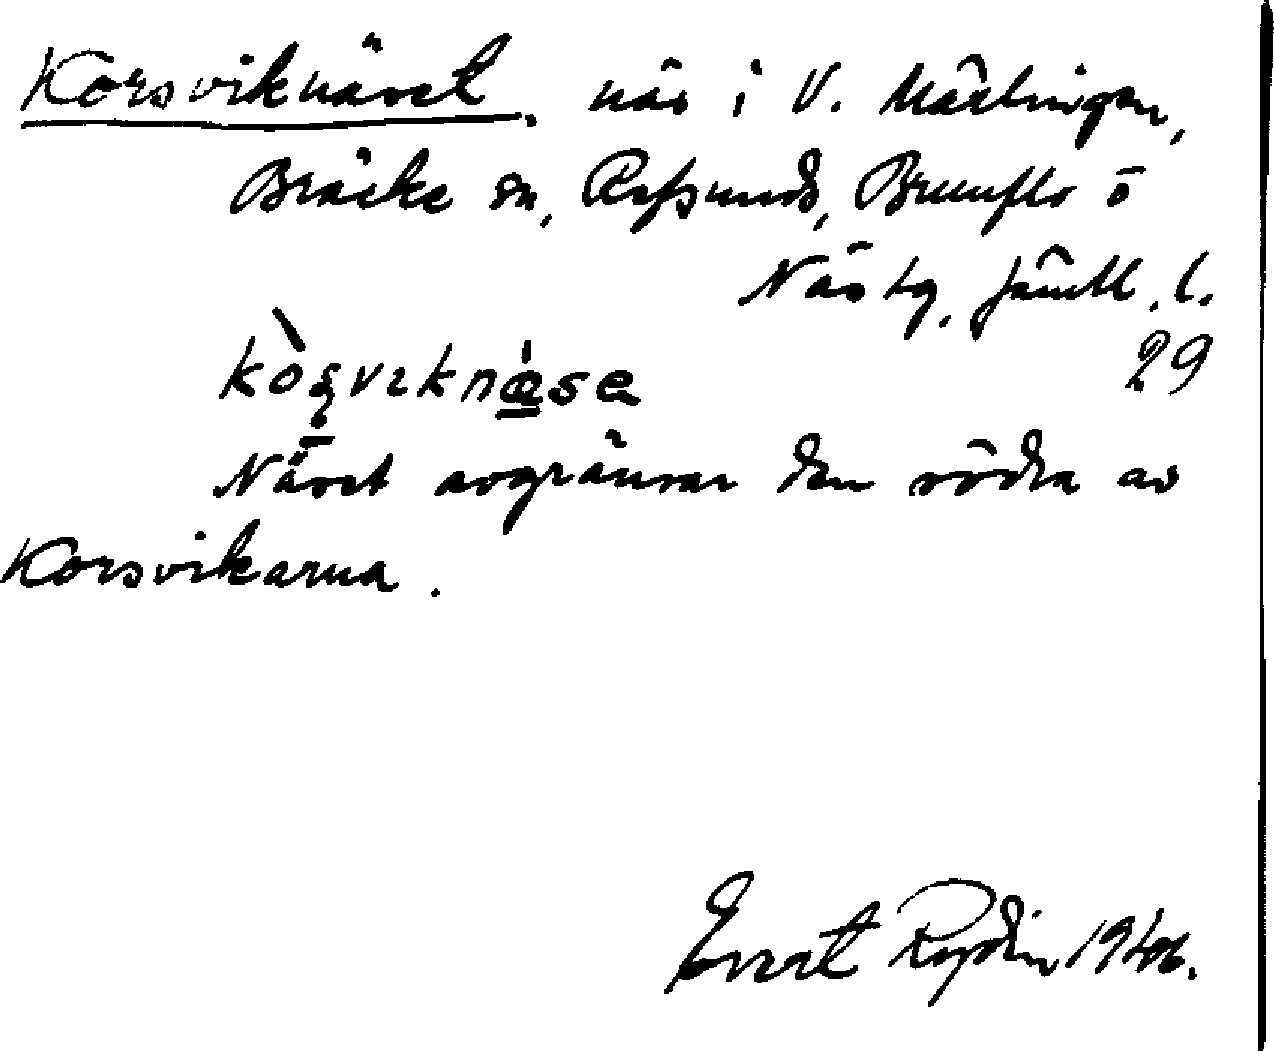 Korsviknäset. näs i V. Mälingen,
Bräcke sn, Refsunds, Brunflo o
Näs tg, Jämtl. l.
29
kòşvɪknæ̀sə
Näset avgränsar den södra av
Korsvikarna.
Ernst Rydin 1946.